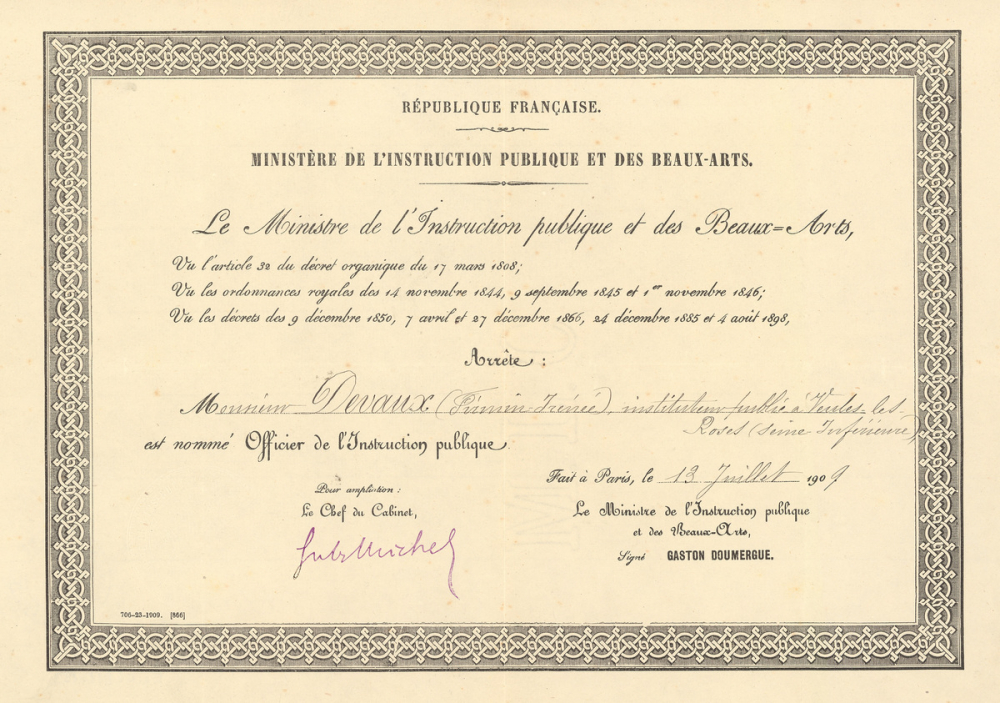 RÉPUBLIQUE FRANÇAISE.
MINISTÈRE DE L'INSTRUCTION PUBLIQUE ET DES BEAUX-ARTS.
Le Ministre de l'Instruction publique et des Beaux=Arts,
Vu l'article 32 du décret organique du 17 mars 1808;
Vu les ordonnances royales des 14 novembre 1844, 9 septembre 1845 et 1er novembre 1846;
Vu les décrets des 9 décembre 1850, 7 avril et 27 décembre 1866, 24 décembre 1885 et 4 août 1898,
Arrête :
Monsieur Devaux (Firmin Irénée), instituteur public à Veules-les-
Roses (Seine Inférieure),
est nommé Officier de l'Instruction publique.
Fait à Paris, le 13 Juillet 1909
Pour ampliation :
Le Chef du Cabinet,
Le Ministre de l'Instruction publique
et des Beaux-Arts,
Signé GASTON DOUMERGUE.
706-23-1909. [866]